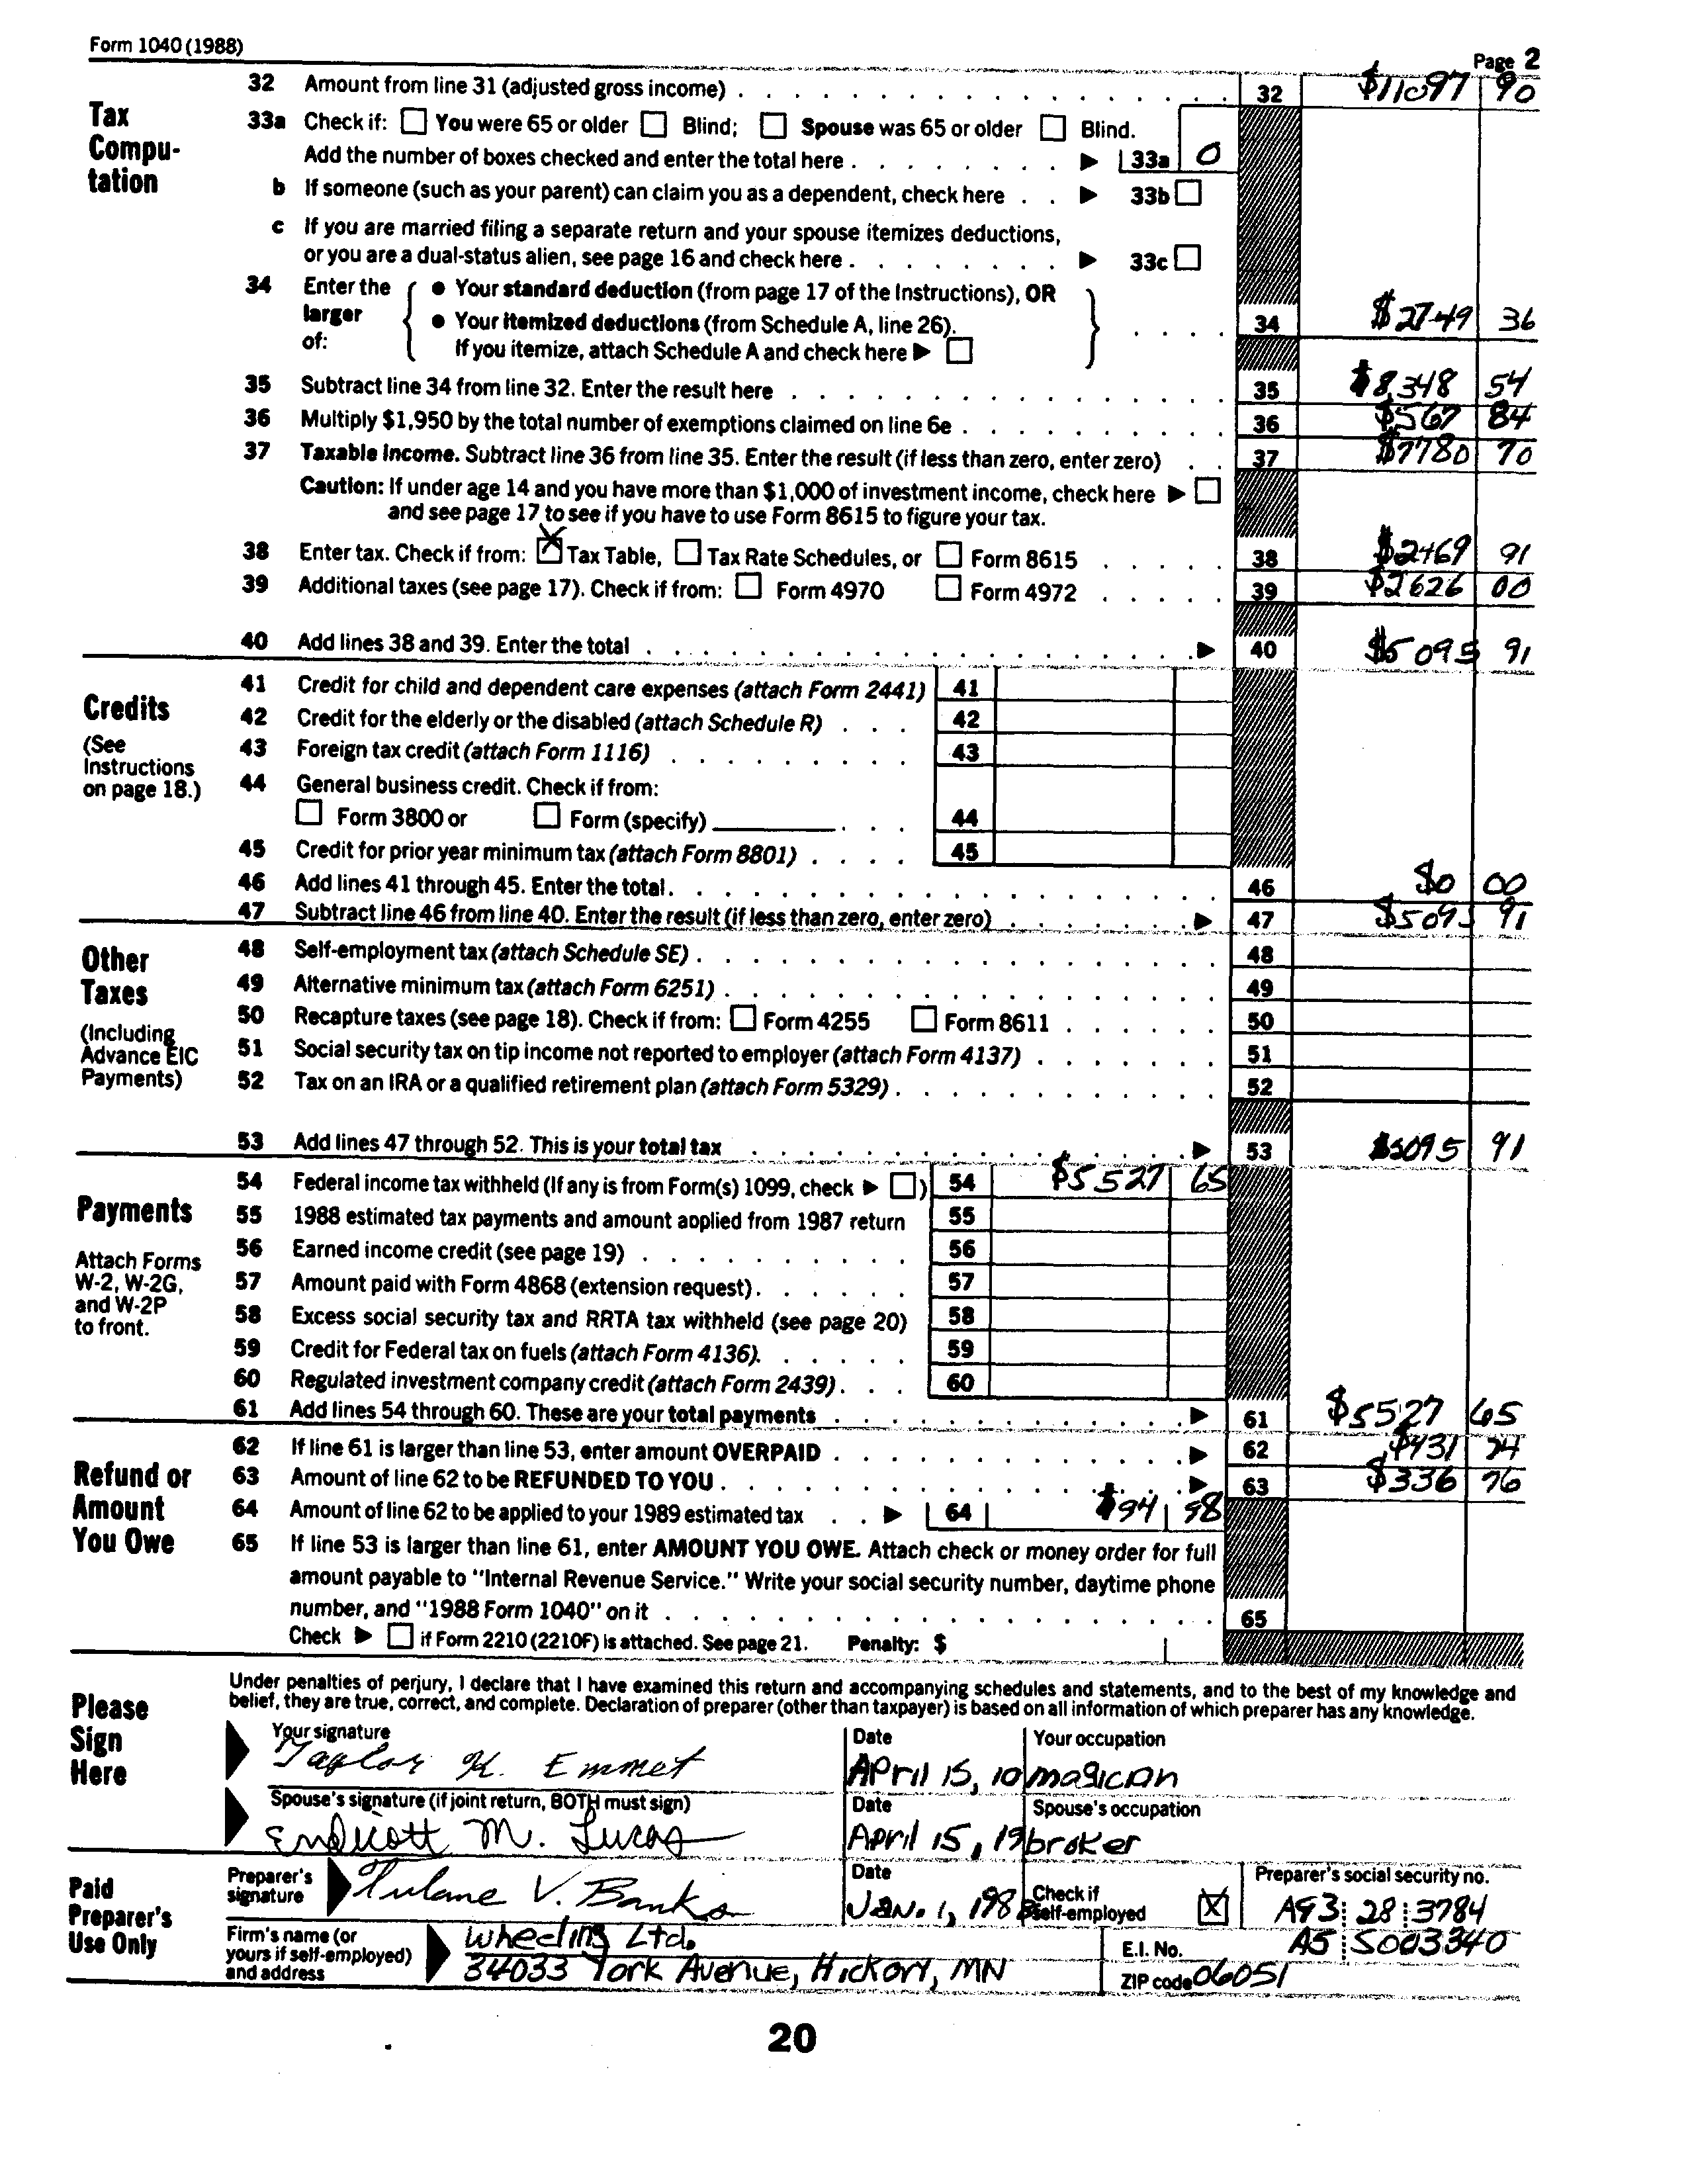 Form 1040 (1988)
Page 2
Tax Compu-tation
32 Amount from line 31 (adjusted gross income) 32 $11097 90
33a Check if: You were 65 or older Blind; Spouse was 65 or older Blind.
Add the number of boxes checked and enter the total here 33a 0
b If someone (such as your parent) can claim you as a dependent, check here 33b
c If you are married filing a separate return and your spouse itemizes deductions,
or you are a dual-status alien, see page 16 and check here 33c
34 Enter the larger of: • Your standard deduction (from page 17 of the Instructions), OR
• Your itemized deductions (from Schedule A, line 26). 34 $2749 36
If you itemize, attach Schedule A and check here
35 Subtract line 34 from line 32. Enter the result here 35 $8,348 54
36 Multiply $1,950 by the total number of exemptions claimed on line 6e 36 $567 84
37 Taxable income. Subtract line 36 from line 35. Enter the result (if less than zero, enter zero) 37 $7780 70
Caution: If under age 14 and you have more than $1,000 of investment income, check here
and see page 17 to see if you have to use Form 8615 to figure your tax.
38 Enter tax. Check if from: X Tax Table, Tax Rate Schedules, or Form 8615 38 $2469 91
39 Additional taxes (see page 17). Check if from: Form 4970 Form 4972 39 $2626 00
40 Add lines 38 and 39. Enter the total 40 $5095 91
Credits
(See Instructions on page 18.)
41 Credit for child and dependent care expenses (attach Form 2441) 41
42 Credit for the elderly or the disabled (attach Schedule R) 42
43 Foreign tax credit (attach Form 1116) 43
44 General business credit. Check if from:
Form 3800 or Form (specify) 44
45 Credit for prior year minimum tax (attach Form 8801) 45
46 Add lines 41 through 45. Enter the total. 46 $0 00
47 Subtract line 46 from line 40. Enter the result (if less than zero, enter zero) 47 $5095 91
Other Taxes
(Including Advance EIC Payments)
48 Self-employment tax (attach Schedule SE) 48
49 Alternative minimum tax (attach Form 6251) 49
50 Recapture taxes (see page 18). Check if from: Form 4255 Form 8611 50
51 Social security tax on tip income not reported to employer (attach Form 4137) 51
52 Tax on an IRA or a qualified retirement plan (attach Form 5329) 52
53 Add lines 47 through 52. This is your total tax 53 $5095 91
Payments
Attach Forms W-2, W-2G, and W-2P to front.
54 Federal income tax withheld (If any is from Form(s) 1099, check ) 54 $5527 65
55 1988 estimated tax payments and amount applied from 1987 return 55
56 Earned income credit (see page 19) 56
57 Amount paid with Form 4868 (extension request) 57
58 Excess social security tax and RRTA tax withheld (see page 20) 58
59 Credit for Federal tax on fuels (attach Form 4136). 59
60 Regulated investment company credit (attach Form 2439) 60
61 Add lines 54 through 60. These are your total payments 61 $5527 65
Refund or Amount You Owe
62 If line 61 is larger than line 53, enter amount OVERPAID 62 $431 74
63 Amount of line 62 to be REFUNDED TO YOU 63 $336 76
64 Amount of line 62 to be applied to your 1989 estimated tax 64 $94 98
65 If line 53 is larger than line 61, enter AMOUNT YOU OWE. Attach check or money order for full
amount payable to "Internal Revenue Service." Write your social security number, daytime phone
number, and "1988 Form 1040" on it 65
Check if Form 2210 (2210F) is attached. See page 21. Penalty: $
Please Sign Here
Under penalties of perjury, I declare that I have examined this return and accompanying schedules and statements, and to the best of my knowledge and
belief, they are true, correct, and complete. Declaration of preparer (other than taxpayer) is based on all information of which preparer has any knowledge.
Your signature Date Your occupation
Taylor K. Emmet April 15, 10 magician
Spouse's signature (if joint return, BOTH must sign) Date Spouse's occupation
Endicott M. Lucas April 15, 19 broker
Paid Preparer's Use Only
Preparer's signature Tulane V. Banks Date Jan. 1, 198 Check if self-employed X Preparer's social security no. A93 28 3784
Firm's name (or yours if self-employed) and address Wheeling Ltd. E.I. No. A5 S003340
34033 York Avenue, Hickory, MN ZIP code 06051
20